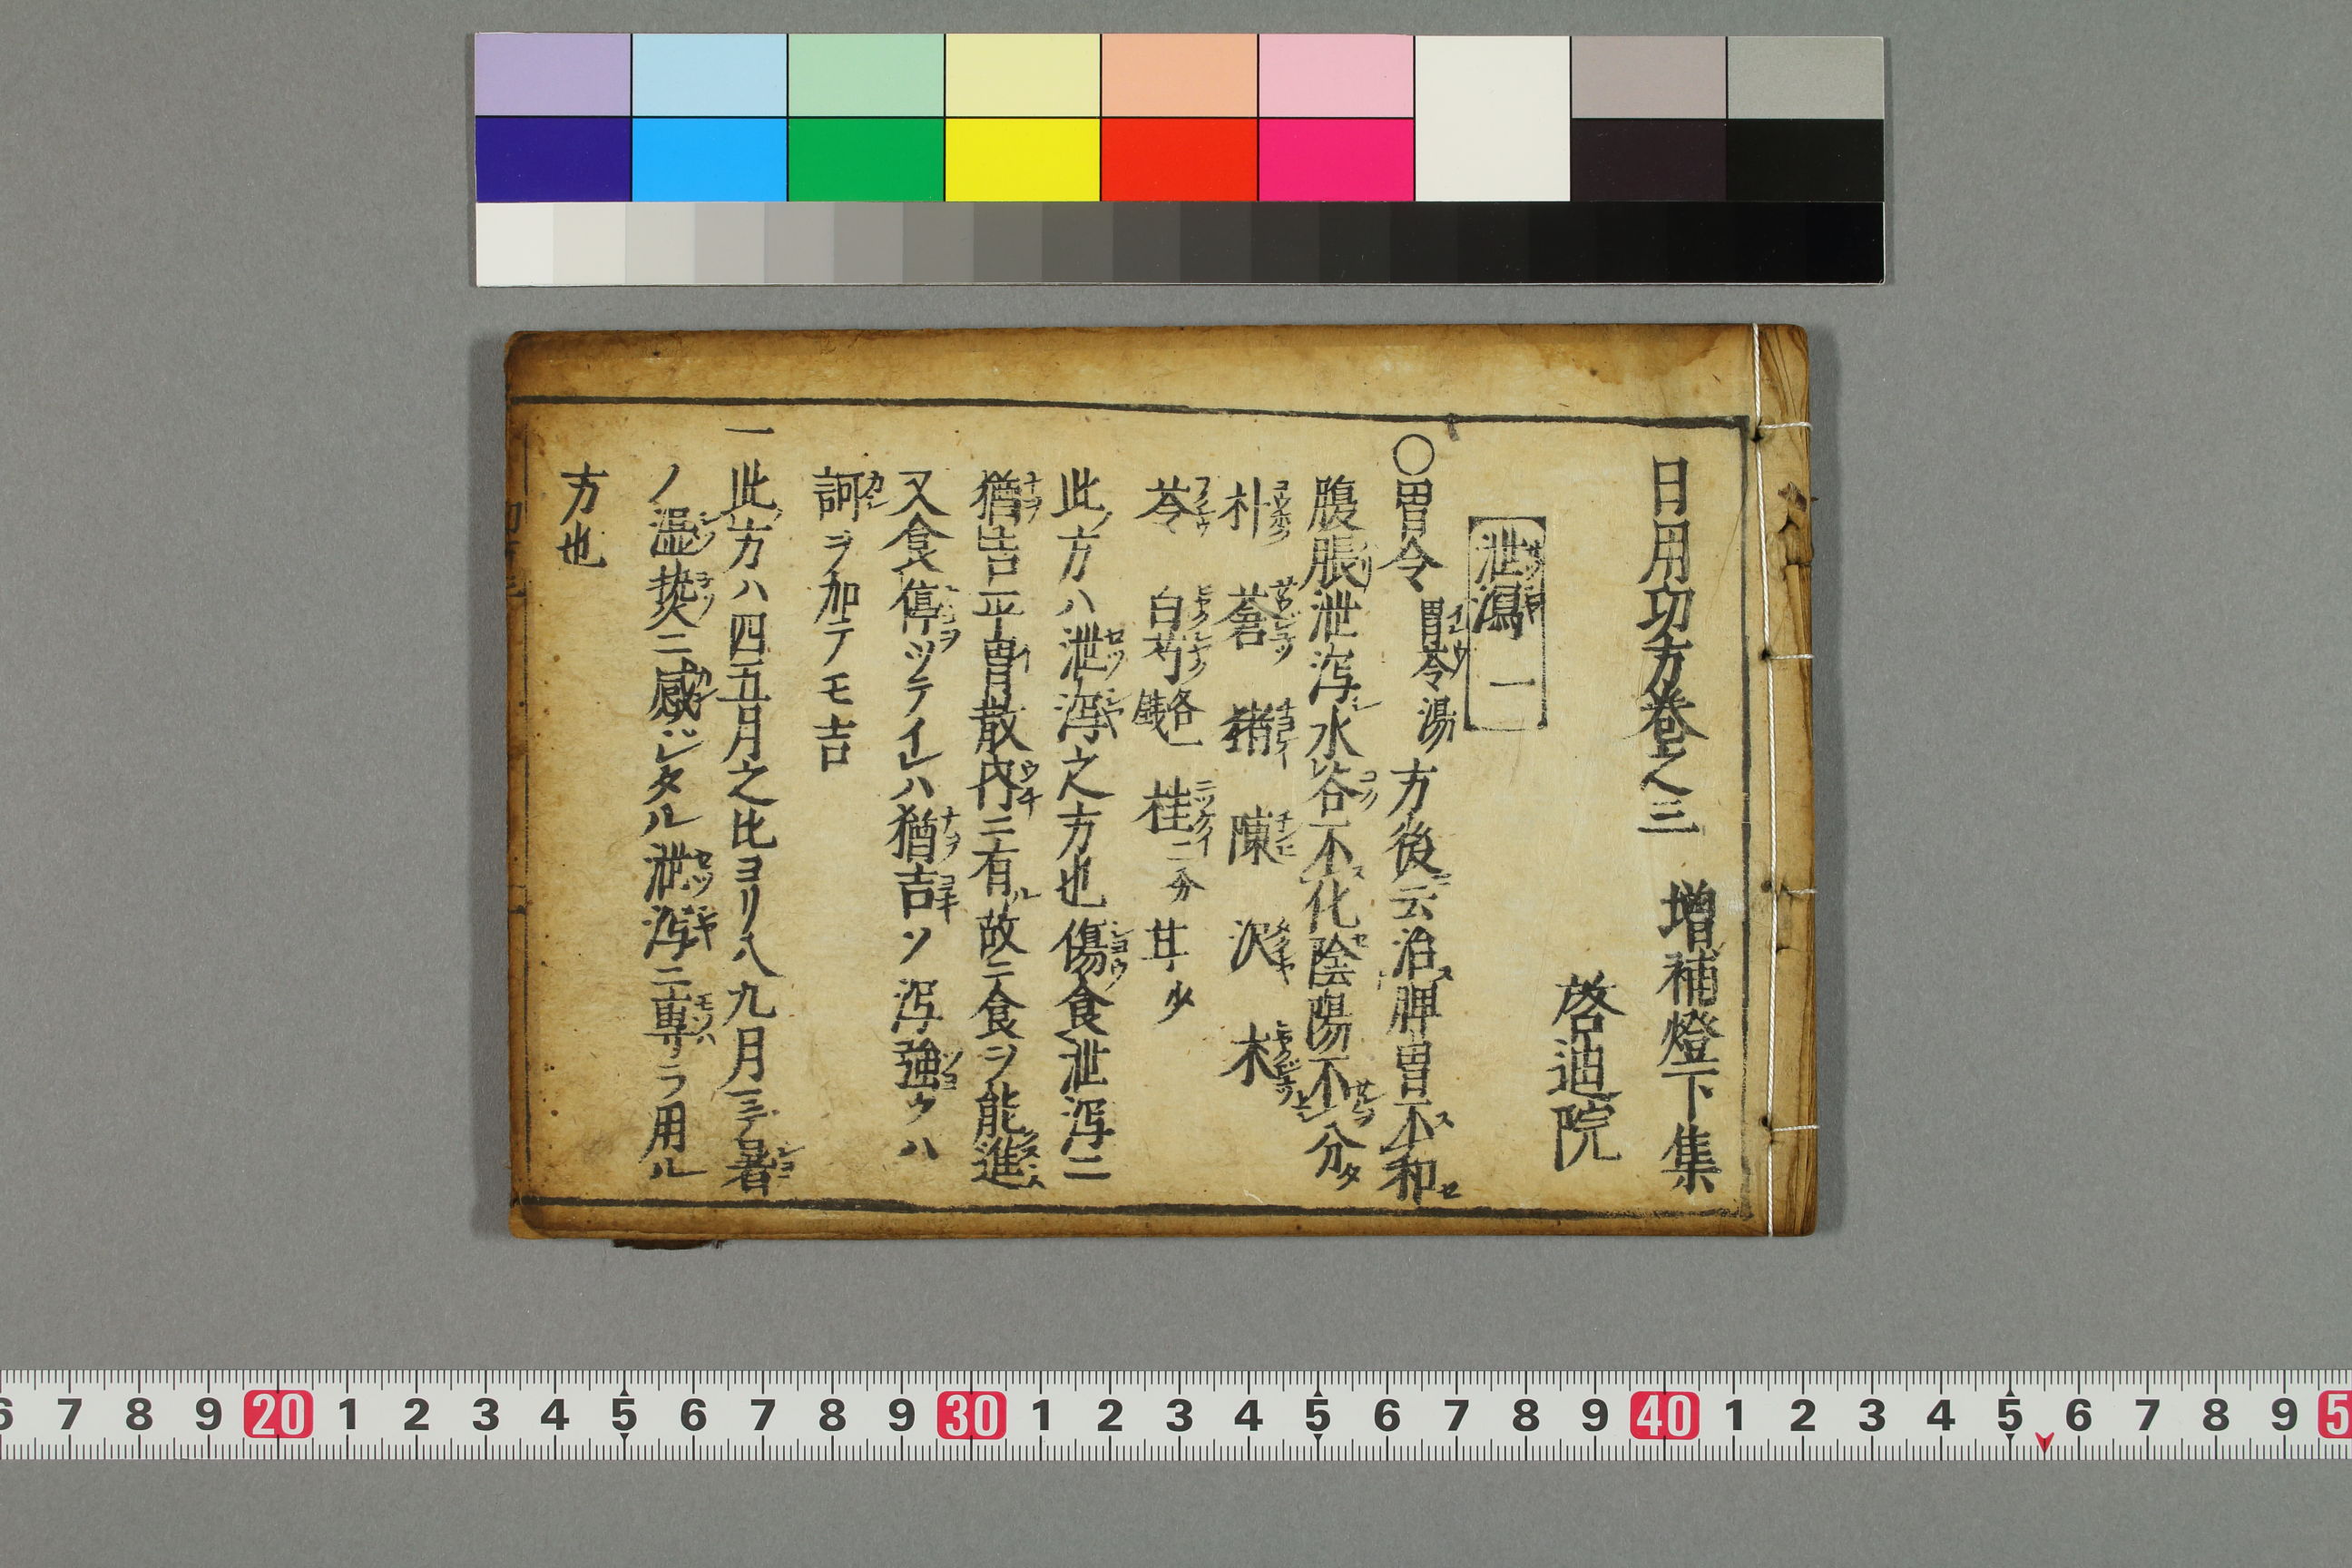 日用功方巻之三 増補燈下集
啓迪院
泄瀉 一
〇胃令 胃苓湯 方後云治脾胃不和
腹脹泄瀉水谷不化陰陽不分
朴 蒼 猪 陳 沢 朮
苓 白芍各一銭 桂二分 甘少
此方ハ泄瀉之方也傷食泄瀉ニ
猶吉平胃散内ニ有故ニ食ヲ能進
又食停ツテイレハ猶吉ソ瀉強ウハ
訶ヲ加テモ吉
一此方ハ四五月之比ヨリ八九月ニ暑
ノ温熱ニ感ジタル泄瀉ニ専ラ用ル
方也
6 7 8 9 20 1 2 3 4 5 6 7 8 9 30 1 2 3 4 5 6 7 8 9 40 1 2 3 4 5 6 7 8 9 5